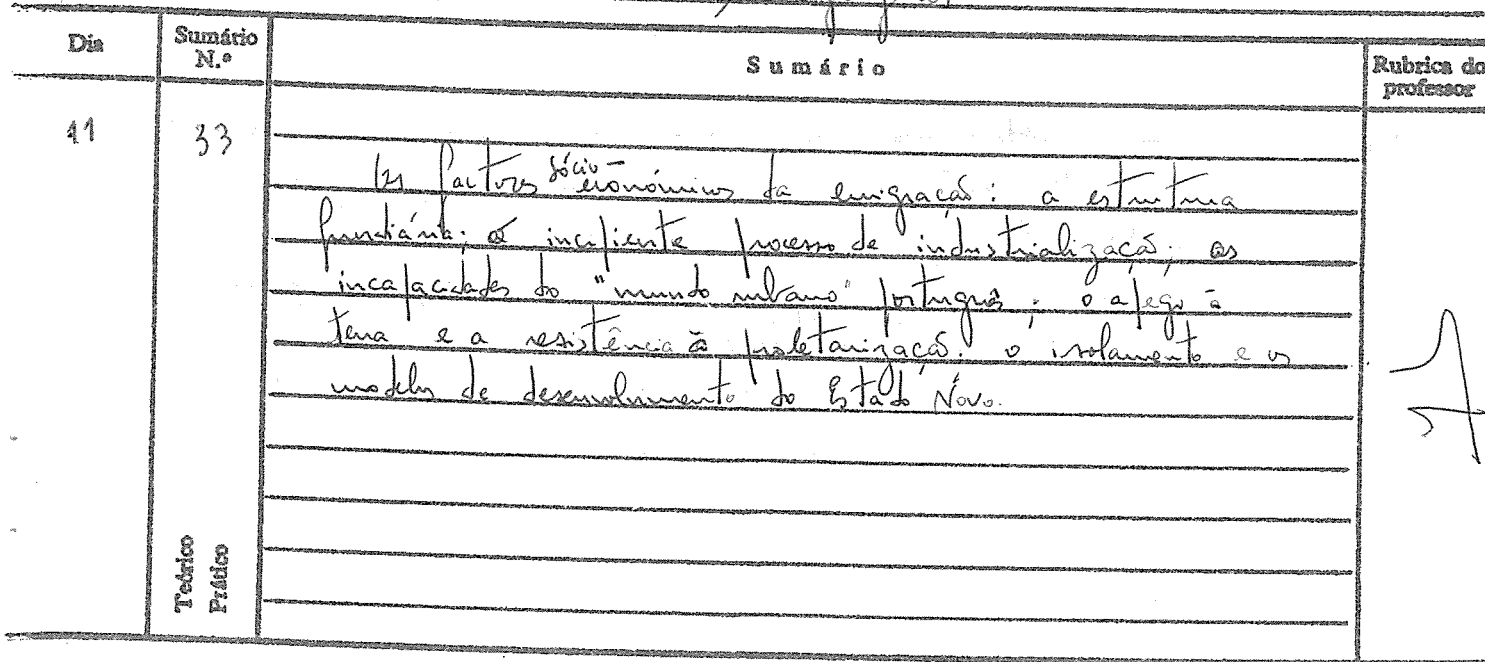 Dia
Sumário N.º
Sumário
Rubrica do professor
11
33
Os factores sócio-económicos da emigração: a estrutura
fundiária; o incipiente processo de industrialização; as
incapacidades do "mundo urbano" português; o apego à
terra e a resistência à proletarização; o isolamento e os
modelos de desenvolvimento do Estado Novo.
Teórico
Prático